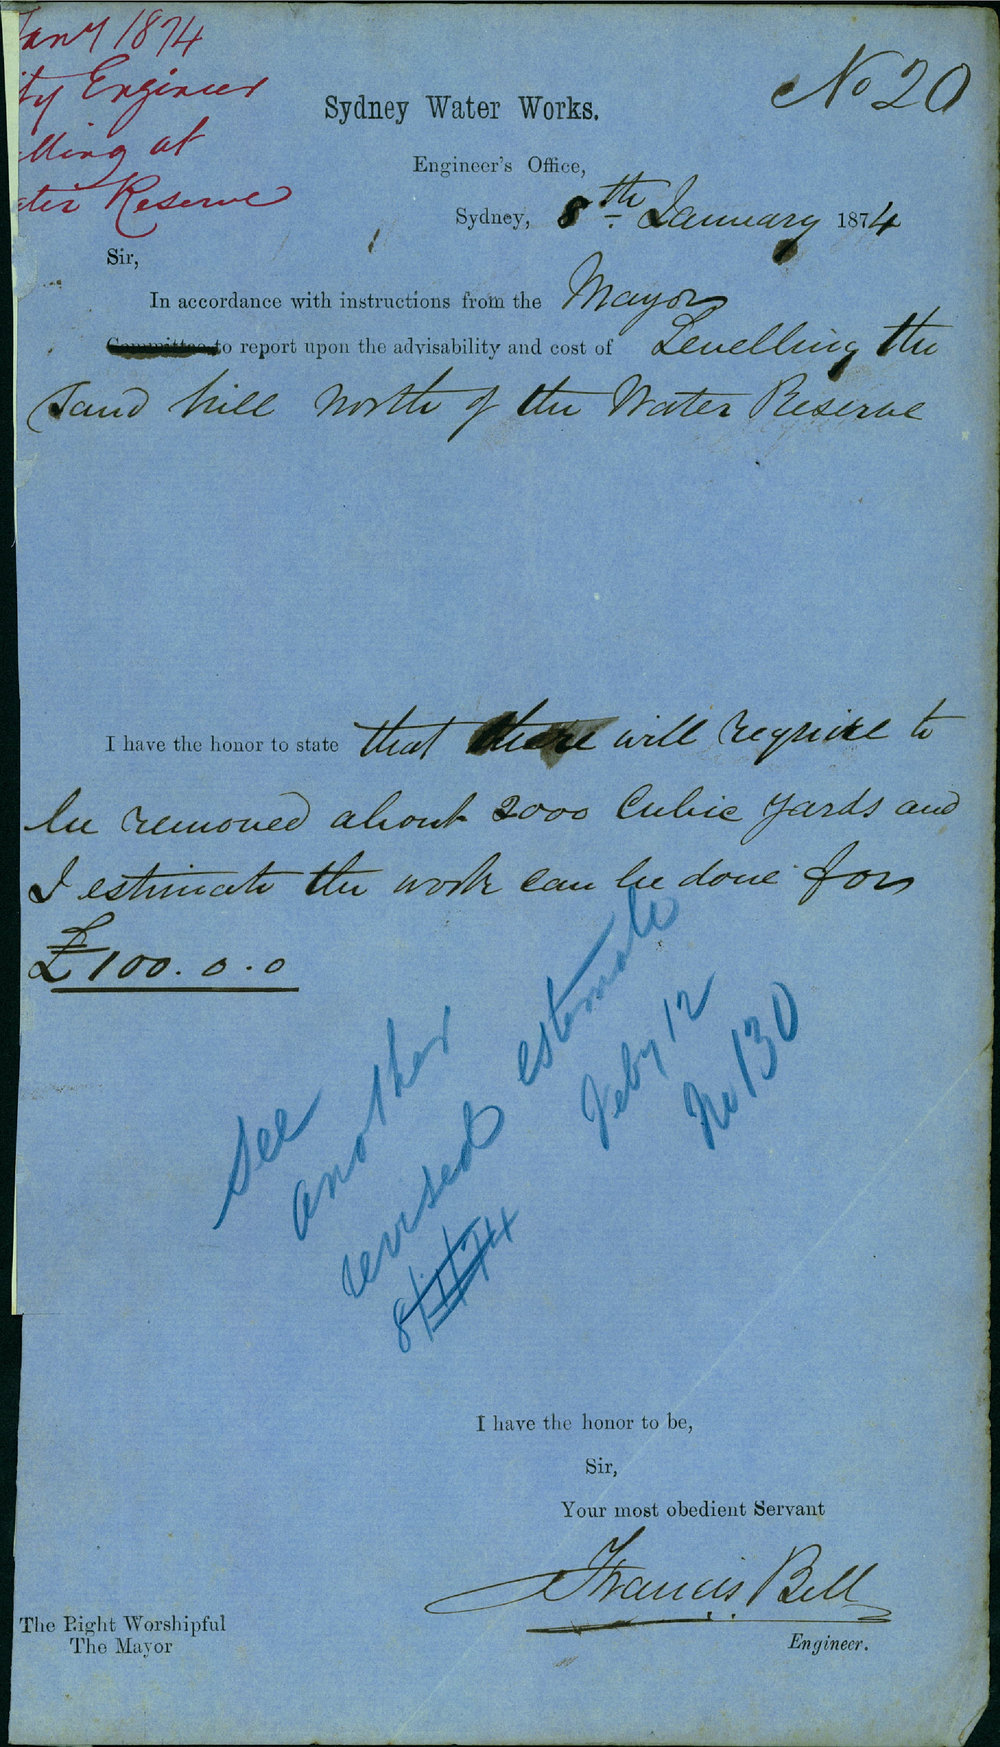 Jany 1874
ity Engineer
lling at
ater Reserve
No 20
Sydney Water Works.
Engineer's Office,
Sydney, 8th January 1874
Sir,
In accordance with instructions from the Mayor
Committee to report upon the advisability and cost of Levelling the
Sand hill North of the Water Reserve
I have the honor to state that there will require to
be removed about 2000 Cubic yards and
I estimate the work can be done for
£100.0.0
See
another
revised estimate
Feby 12
No 130
I have the honor to be,
Sir,
Your most obedient Servant
Francis Bell
Engineer.
The Right Worshipful
The Mayor